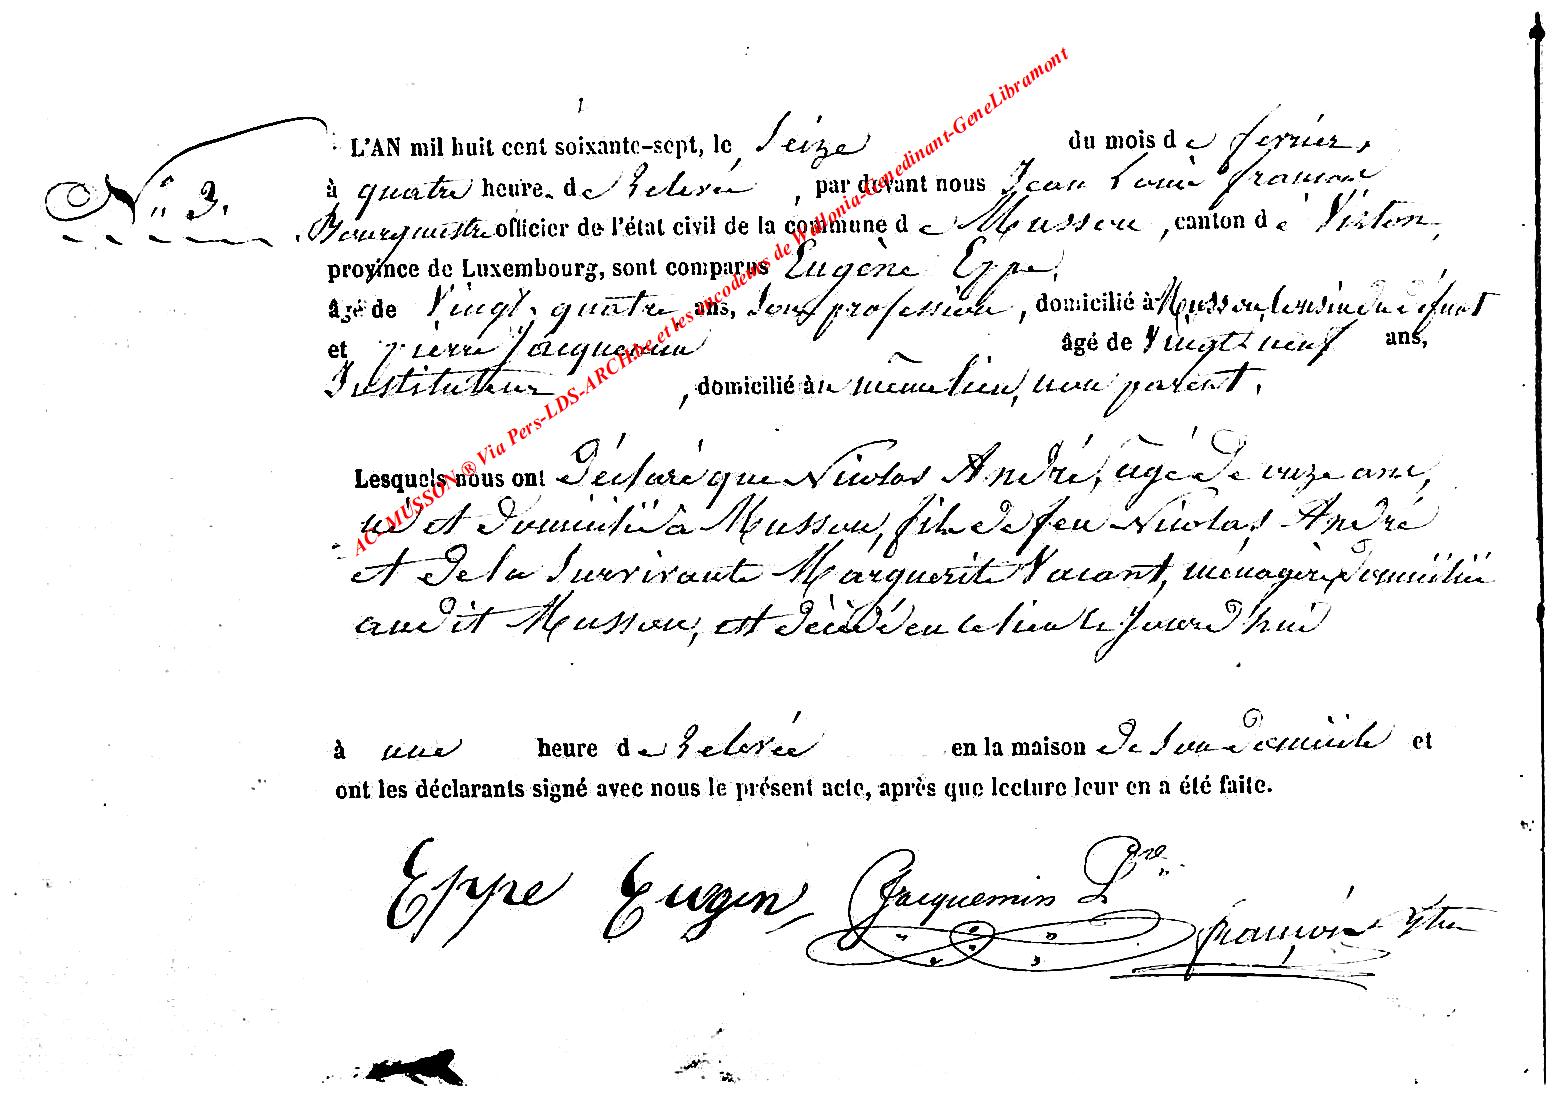 L'AN mil huit cent soixante-sept, le Seize du mois de fevrier,
N° 3. à quatre heure. de Relevée, par devant nous Jean Louis françois
Bourgmestre officier de l'état civil de la commune de Musson, canton de Virton,
province de Luxembourg, sont comparus Eugène Eppe,
âgé de Vingt-quatre ans, sans profession, domicilié à Musson, cousin du défunt
et pierre Jacquemin âgé de Vingt-neuf ans,
Instituteur, domicilié au même lieu, non parent.
Lesquels nous ont déclaré que Nicolas André, âgé de onze ans,
né et domicilié à Musson, fils de feu Nicolas André
et de la Survivante Marguerite Vacant, ménagère domiciliée
audit Musson, est décédé en ce lieu le Jourd'hui
à une heure de Relevée en la maison de son domicile et
ont les déclarants signé avec nous le présent acte, après que lecture leur en a été faite.
Eppe Eugen Jacquemin Pre françois
AC. MUSSON ® Via Pers-LDS-ARCH.be et les encodeurs de Wallonia-Genedinant-GeneLibramont